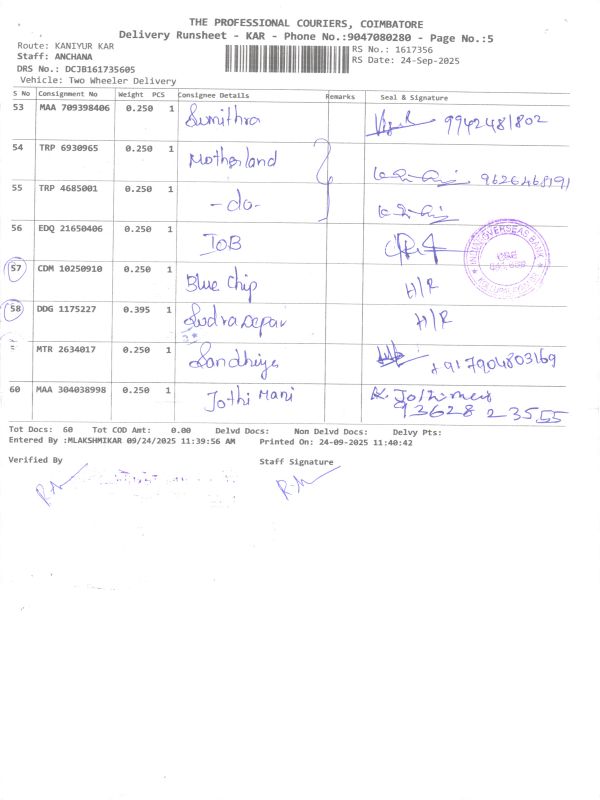 THE PROFESSIONAL COURIERS, COIMBATORE
Delivery Runsheet - KAR - Phone No.:9047080280 - Page No.:5
Route: KANIYUR KAR
RS No.: 1617356
Staff: ANCHANA
RS Date: 24-Sep-2025
DRS No.: DCJB161735605
Vehicle: Two Wheeler Delivery
S No Consignment No Weight PCS Consignee Details Remarks Seal & Signature
53 MAA 709398406 0.250 1 Sumithra 9942481802
54 TRP 6930965 0.250 1 Motherland 9626468191
55 TRP 4685001 0.250 1 -do-
56 EDQ 21650406 0.250 1 IOB
INDIAN OVERSEAS BANK
57 CDM 10250910 0.250 1 Blue chip H/R
58 DDG 1175227 0.395 1 H/R
MTR 2634017 0.250 1 Sandhiya +917904803169
60 MAA 304038998 0.250 1 Jothi Mani K. Jothimani
13628 23555
Tot Docs: 60 Tot COD Amt: 0.00 Delvd Docs: Non Delvd Docs: Delvy Pts:
Entered By :MLAKSHMIKAR 09/24/2025 11:39:56 AM Printed On: 24-09-2025 11:40:42
Verified By Staff Signature